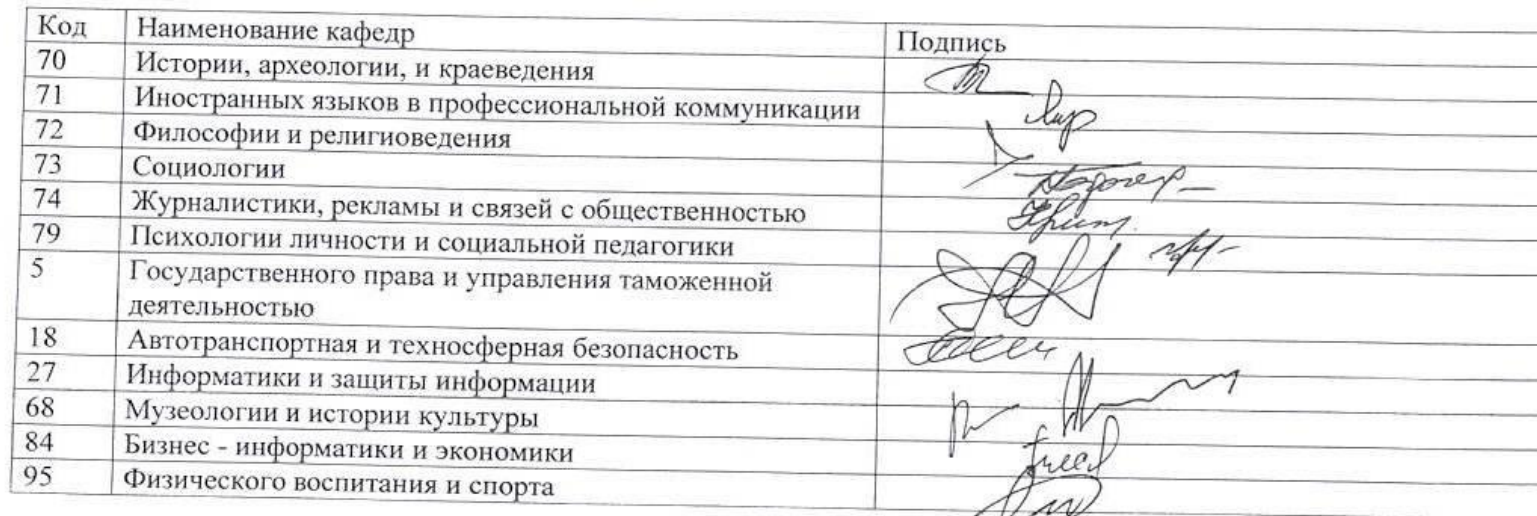 Код Наименование кафедр Подпись
70 Истории, археологии, и краеведения
71 Иностранных языков в профессиональной коммуникации
72 Философии и религиоведения
73 Социологии
74 Журналистики, рекламы и связей с общественностью
79 Психологии личности и социальной педагогики
5 Государственного права и управления таможенной
деятельностью
18 Автотранспортная и техносферная безопасность
27 Информатики и защиты информации
68 Музеологии и истории культуры
84 Бизнес - информатики и экономики
95 Физического воспитания и спорта